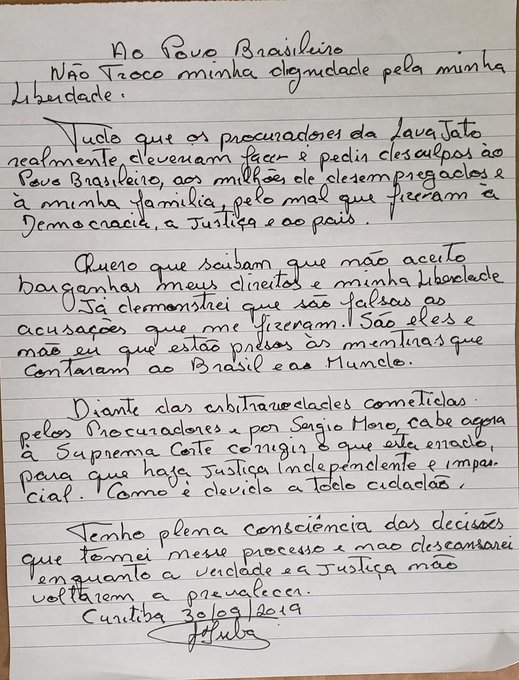 Ao Povo Brasileiro
Não Troco minha dignidade pela minha
Liberdade.
Tudo que os procuradores da Lava Jato
realmente deveriam fazer é pedir desculpas ao
Povo Brasileiro, aos milhões de desempregados e
à minha familia, pelo mal que fizeram à
Democracia, a Justiça e ao pais.
Quero que saibam que não aceito
barganhar meus direitos e minha Liberdade
Já demonstrei que são falsas as
acusações que me fizeram. São eles e
não eu que estão presos às mentiras que
contaram ao Brasil e ao Mundo.
Diante das arbitrariedades cometidas
pelos Procuradores e por Sergio Moro, cabe agora
à Suprema Corte corrigir o que está errado,
para que haja Justiça Independente e impar-
cial. Como é devido a todo cidadão.
Tenho plena consciência das decisões
que tomei nesse processo e não descansarei
enquanto a verdade e a Justiça não
voltarem a prevalecer.
Curitiba 30/09/2019
Lula